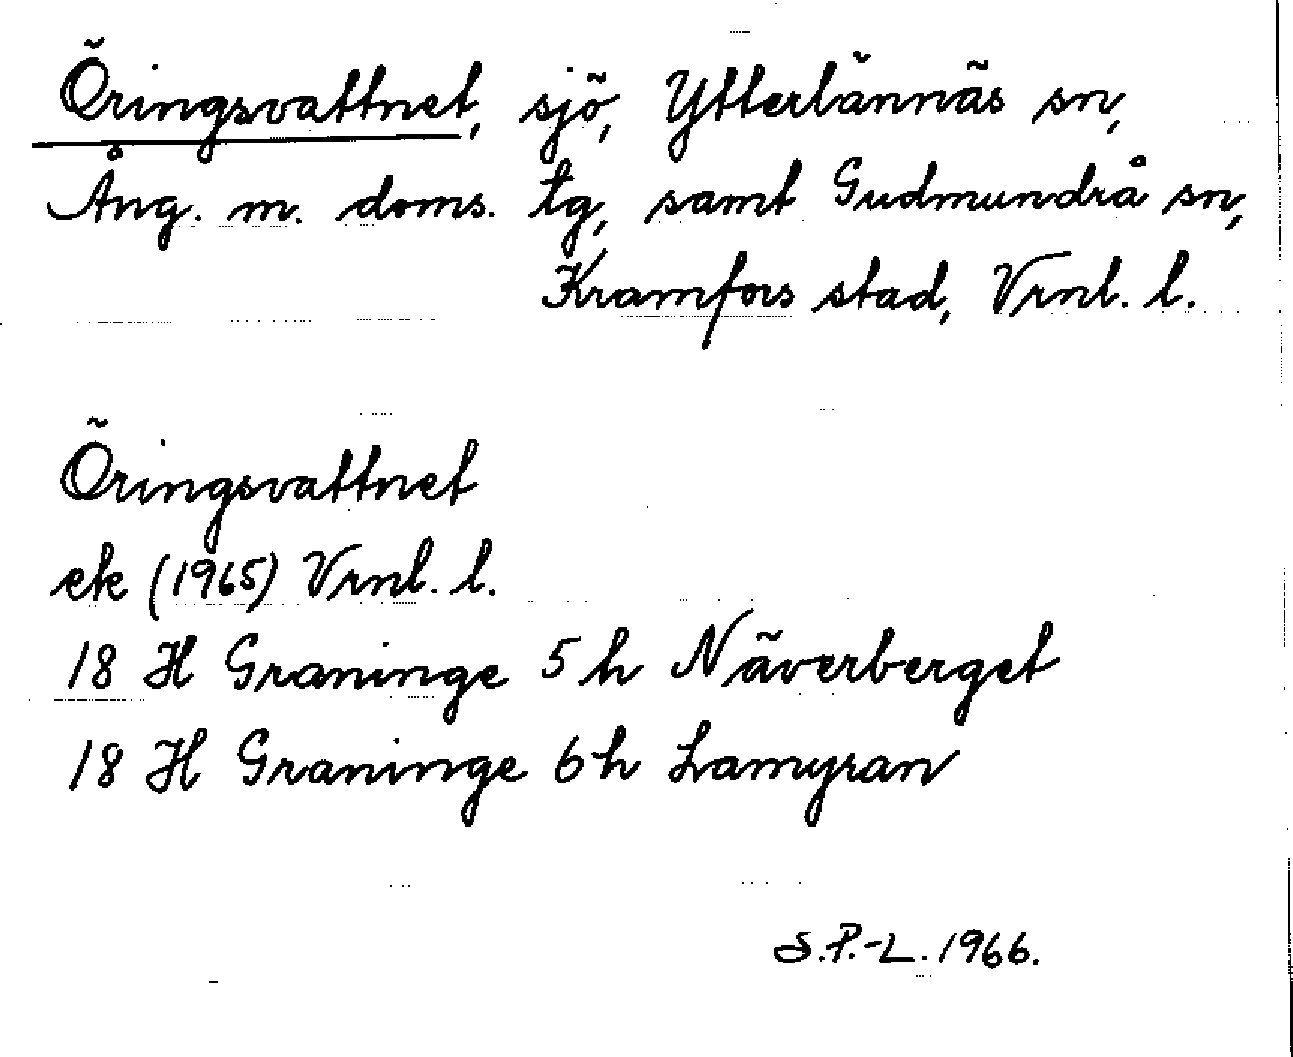 Öringsvattnet, sjö, Ytterlännäs sn,
Ång. m. doms. tg, samt Gudmundrå sn,
Kramfors stad, Vrnl. l.
Öringsvattnet
ek (1965) Vrnl. l.
18 H Graninge 5 h Näverberget
18 H Graninge 6 h Lamyran
S.P.-L. 1966.